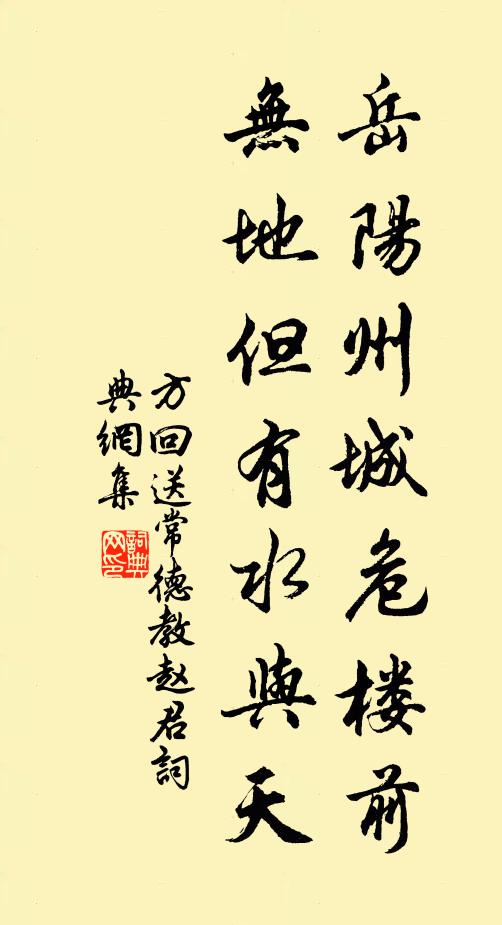 岳陽州城危楼前
無地但有水與天
方回送常德教赵君詞
典網集
詞典网印